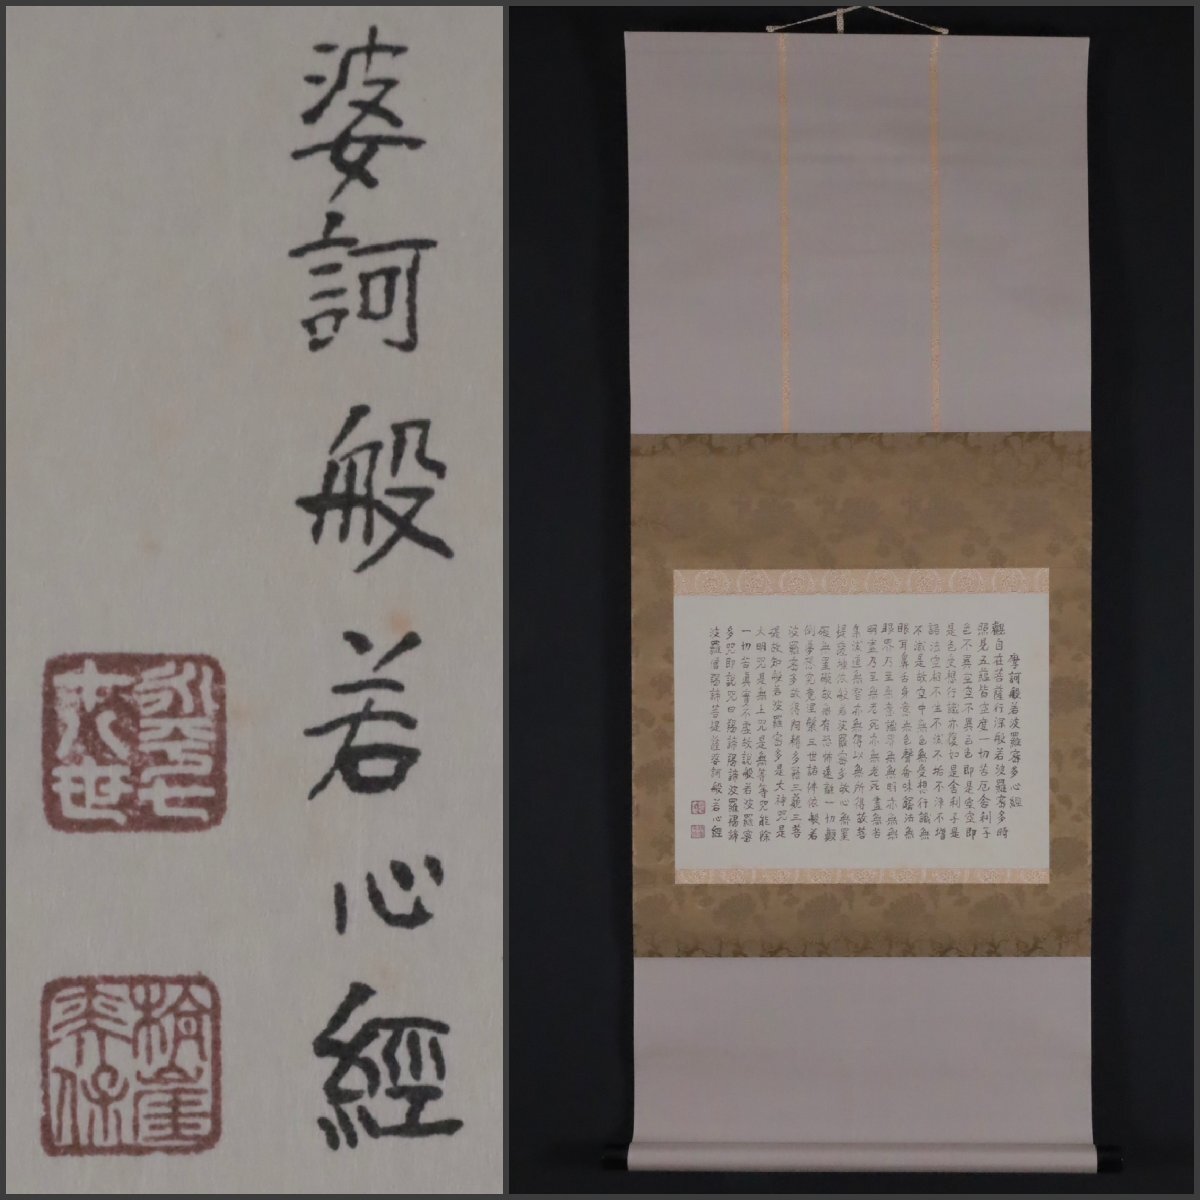 婆訶般若心經
摩訶般若波羅蜜多心經
觀自在菩薩行深般若波羅蜜多時
照見五蘊皆空度一切苦厄舍利子
色不異空空不異色色即是空空即
是色受想行識亦復如是舍利子是
諸法空相不生不滅不垢不淨不增
不減是故空中無色無受想行識無
眼耳鼻舌身意無色聲香味觸法無
眼界乃至無意識界無無明亦無無
明盡乃至無老死亦無老死盡無苦
集滅道無智亦無得以無所得故菩
提薩埵依般若波羅蜜多故心無罣
礙無罣礙故無有恐怖遠離一切顛
倒夢想究竟涅槃三世諸佛依般若
波羅蜜多故得阿耨多羅三藐三菩
提故知般若波羅蜜多是大神咒是
大明咒是無上咒是無等等咒能除
一切苦真實不虛故説般若波羅蜜
多咒即説咒曰羯諦羯諦波羅羯諦
波羅僧羯諦菩提薩婆訶般若心經